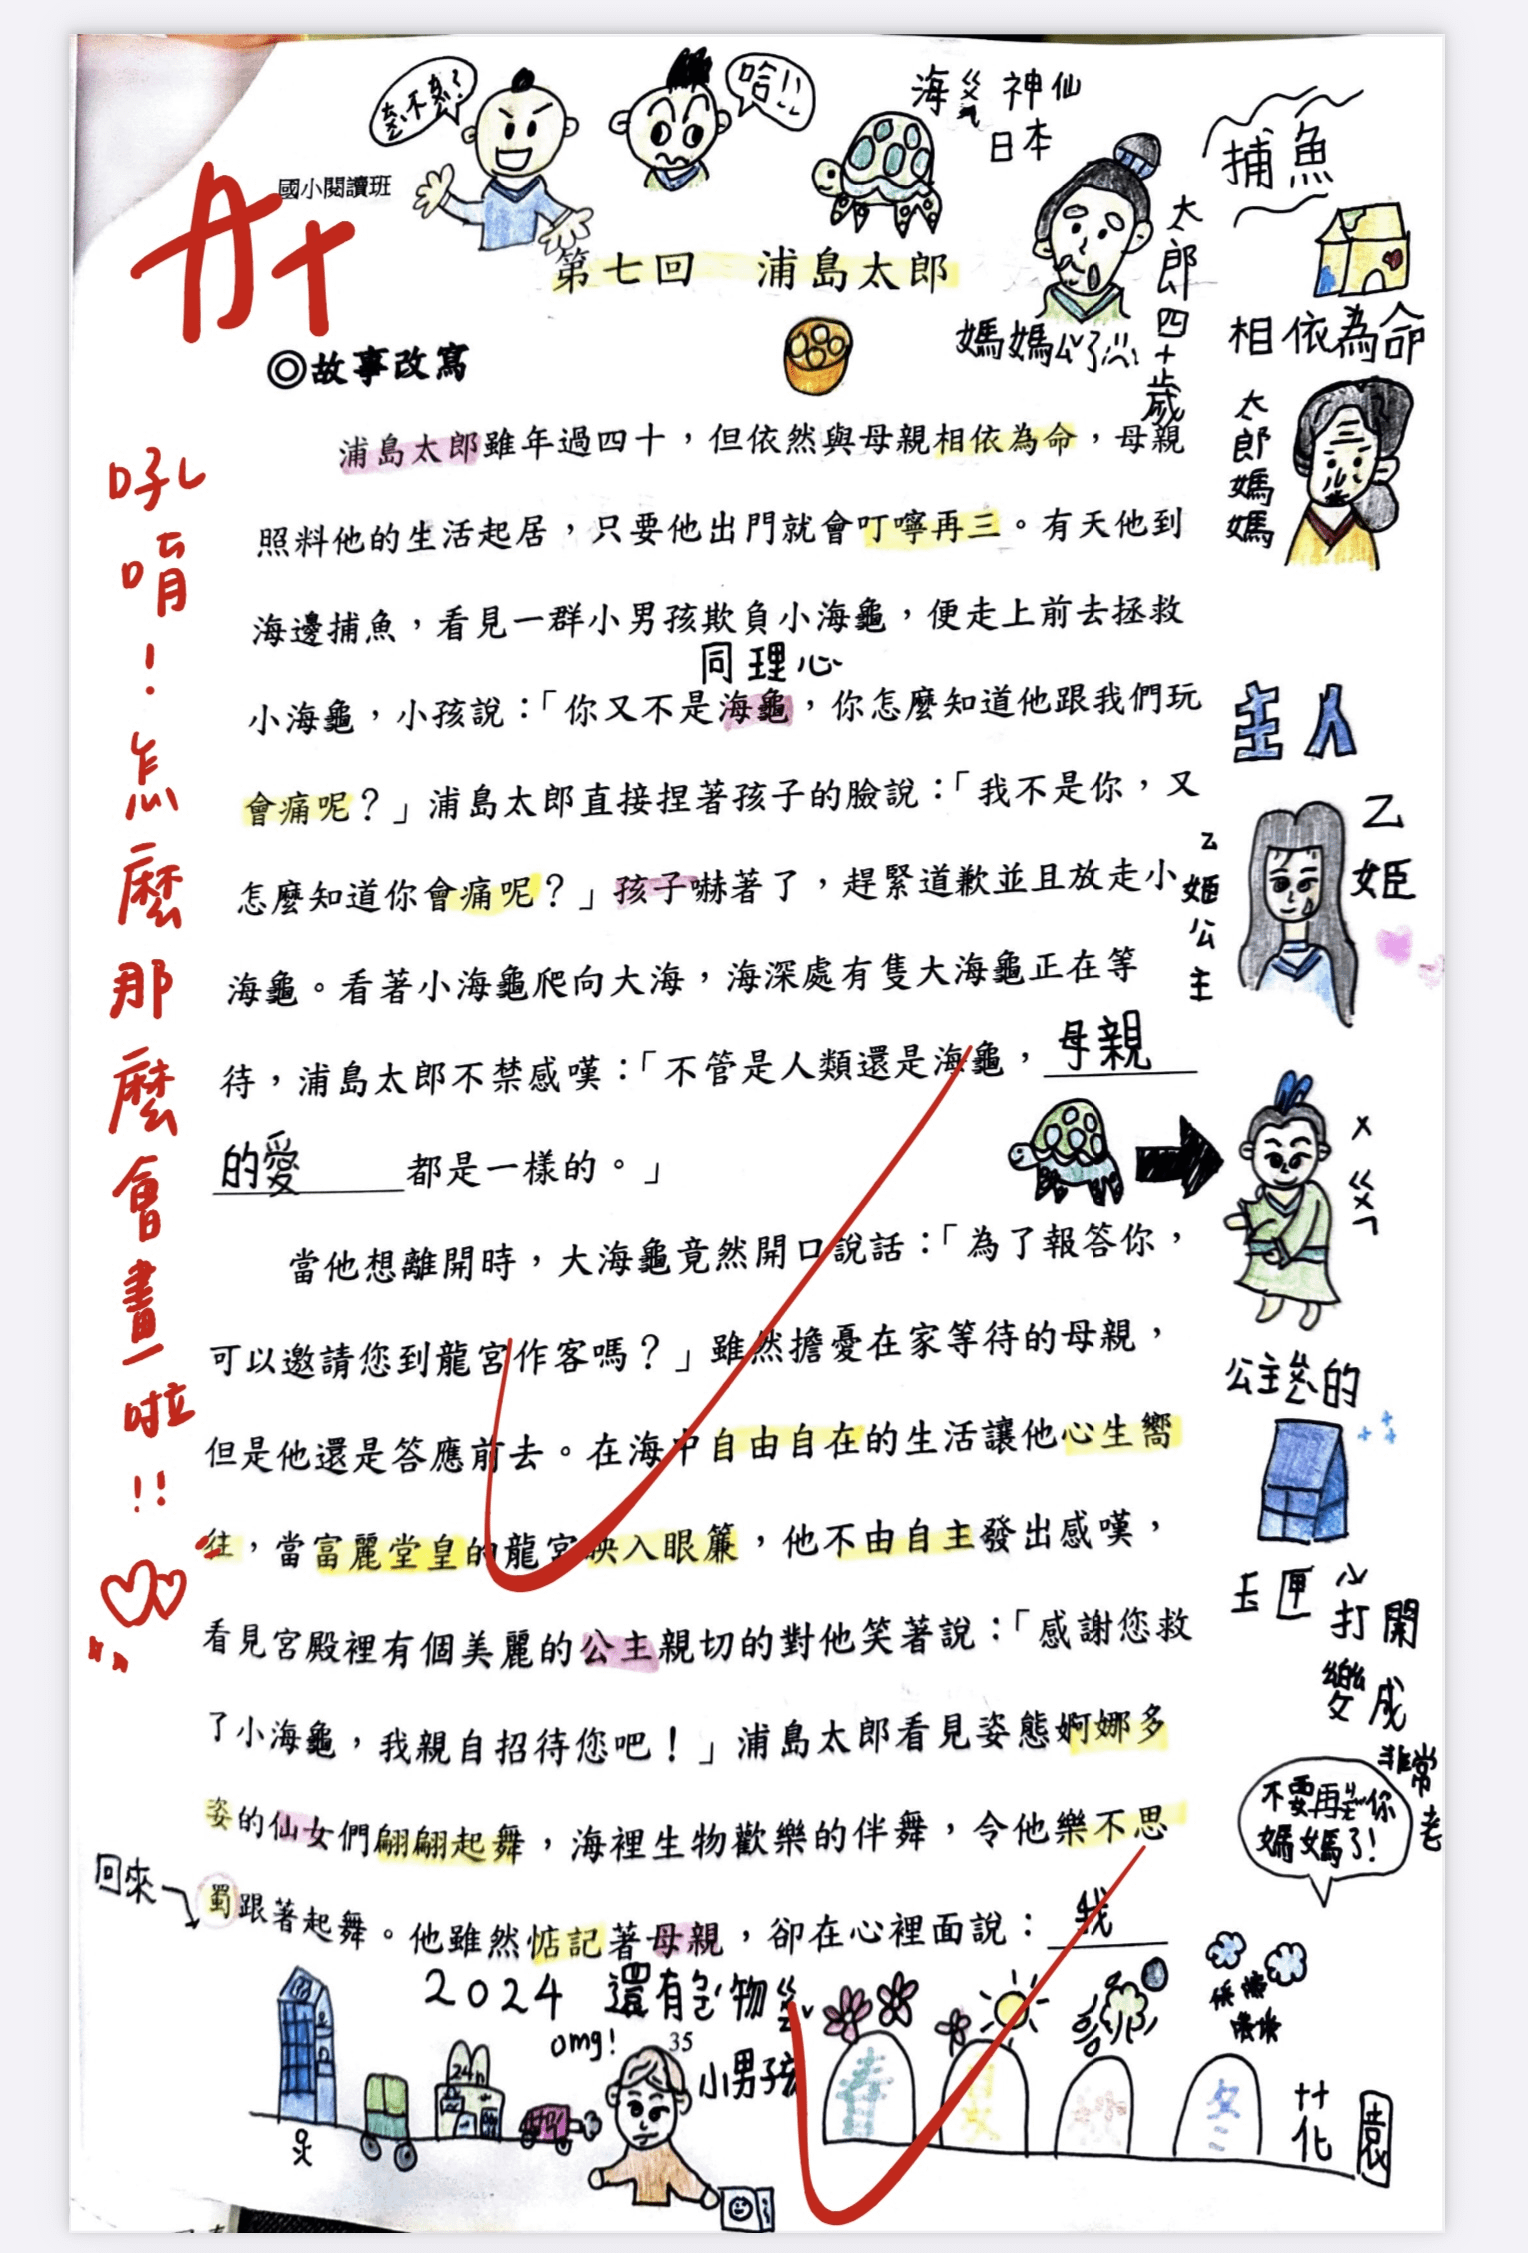 哈!!
海ㄍㄨㄟ 神仙
日本
捕魚
國小閱讀班
A+
第七回　浦島太郎
太郎四十歲
媽媽
相依為命
◎故事改寫
太郎媽媽
浦島太郎雖年過四十，但依然與母親相依為命，母親
照料他的生活起居，只要他出門就會叮嚀再三。有天他到
海邊捕魚，看見一群小男孩欺負小海龜，便走上前去拯救
同理心
小海龜，小孩說：「你又不是海龜，你怎麼知道他跟我們玩
會痛呢？」浦島太郎直接捏著孩子的臉說：「我不是你，又
怎麼知道你會痛呢？」孩子嚇著了，趕緊道歉並且放走小
海龜。看著小海龜爬向大海，海深處有隻大海龜正在等
待，浦島太郎不禁感嘆：「不管是人類還是海龜，母親
的愛都是一樣的。」
主人
乙姬
乙姬公主
當他想離開時，大海龜竟然開口說話：「為了報答你，
可以邀請您到龍宮作客嗎？」雖然擔憂在家等待的母親，
但是他還是答應前去。在海中自由自在的生活讓他心生嚮
往，當富麗堂皇的龍宮映入眼簾，他不由自主發出感嘆，
看見宮殿裡有個美麗的公主親切的對他笑著說：「感謝您救
了小海龜，我親自招待您吧！」浦島太郎看見姿態婀娜多
姿的仙女們翩翩起舞，海裡生物歡樂的伴舞，令他樂不思
蜀跟著起舞。他雖然惦記著母親，卻在心裡面說：我
ㄨ ㄍㄨㄟ
的
玉匣
打開
變成
非常老
媽媽了!
回來
2024 還有
omg!
35
小男孩
24h
春
夏
秋
冬
花園
吼唷！怎麼那麼會畫啦!!